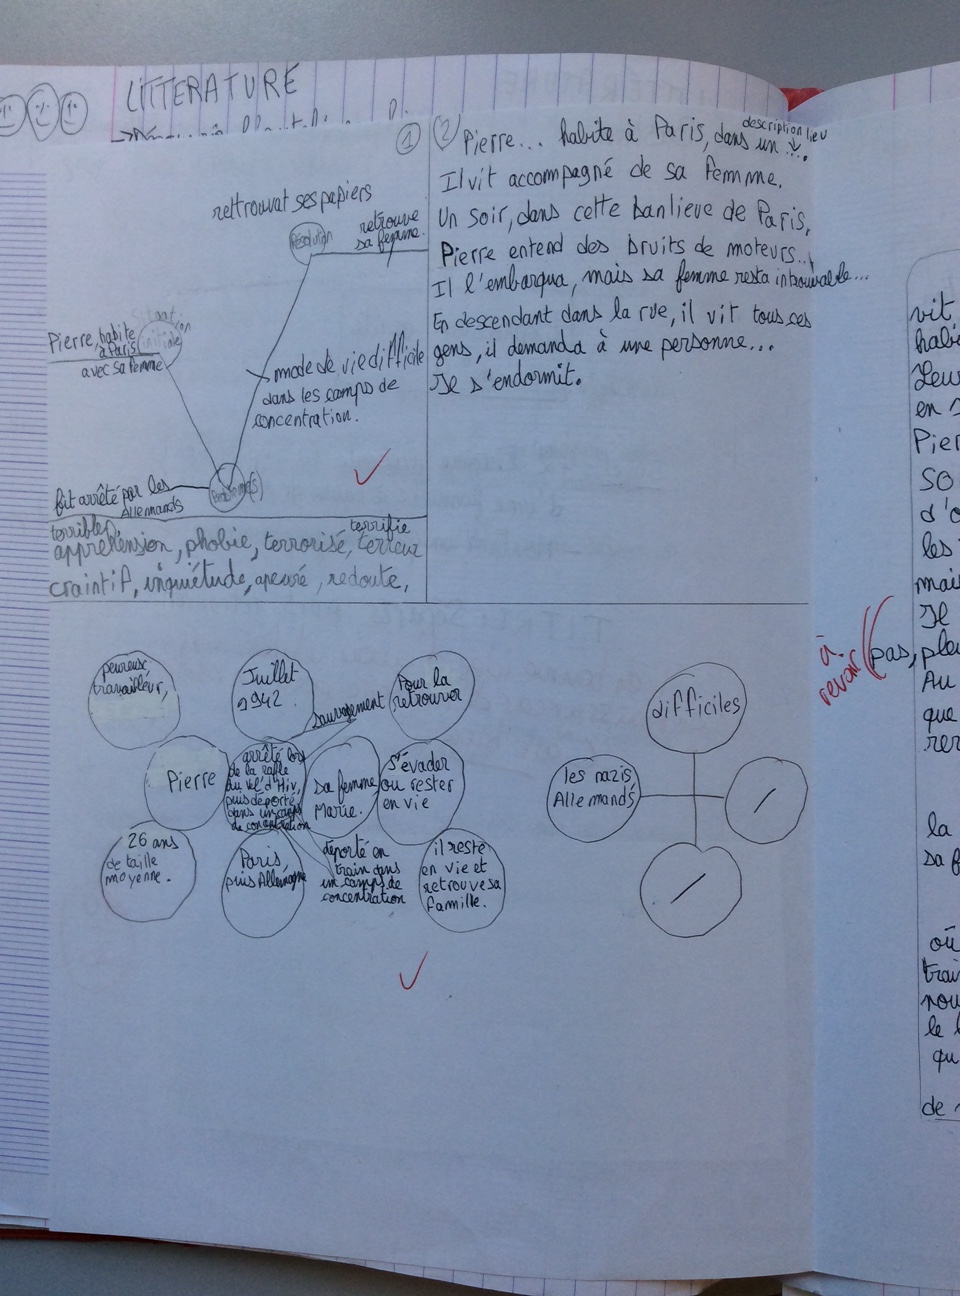 LITTERATURE
1
rettrouvat ses papiers
Résolution
retrouve
sa femme.
Situation
initiale
Pierre, habite
à Paris
avec sa femme
mode de vie difficile
dans les camps de
concentration.
fut arrêté par les
Allemands
terrible,
terrifie
appréhension, phobie, terrorisé, terreur
craintif, inquiétude, apeuré, redoute,
2
description lieu
Pierre... habite à Paris, dans un ...
Il vit accompagné de sa femme.
Un soir, dans cette banlieue de Paris,
Pierre entend des bruits de moteurs...
Il l'embarqua, mais sa femme resta introuvable...
En descendant dans la rue, il vit tous ces
gens, il demanda à une personne...
Il s'endormit.
peureuse
travailleur,
Juillet
1942.
sauvagement
Pour la
retrouver
Pierre
arrêté lors
de la rafle
du vel'd'Hiv,
puis déporté
dans un camps
de concentration
sa femme
Marie.
s'évader
ou rester
en vie
26 ans
de taille
moyenne.
Paris,
puis Allemagne
déporté en
train dans
un camps de
concentration
il reste
en vie et
retrouve sa
famille.
difficiles
les nazis
Allemands
à
revoir
vit
habi
Leur
en
Pier
so
d'o
les
mais
Il
pas, pleu
Au
que
rer
la
sa f
où
trai
nou
le
qu
de